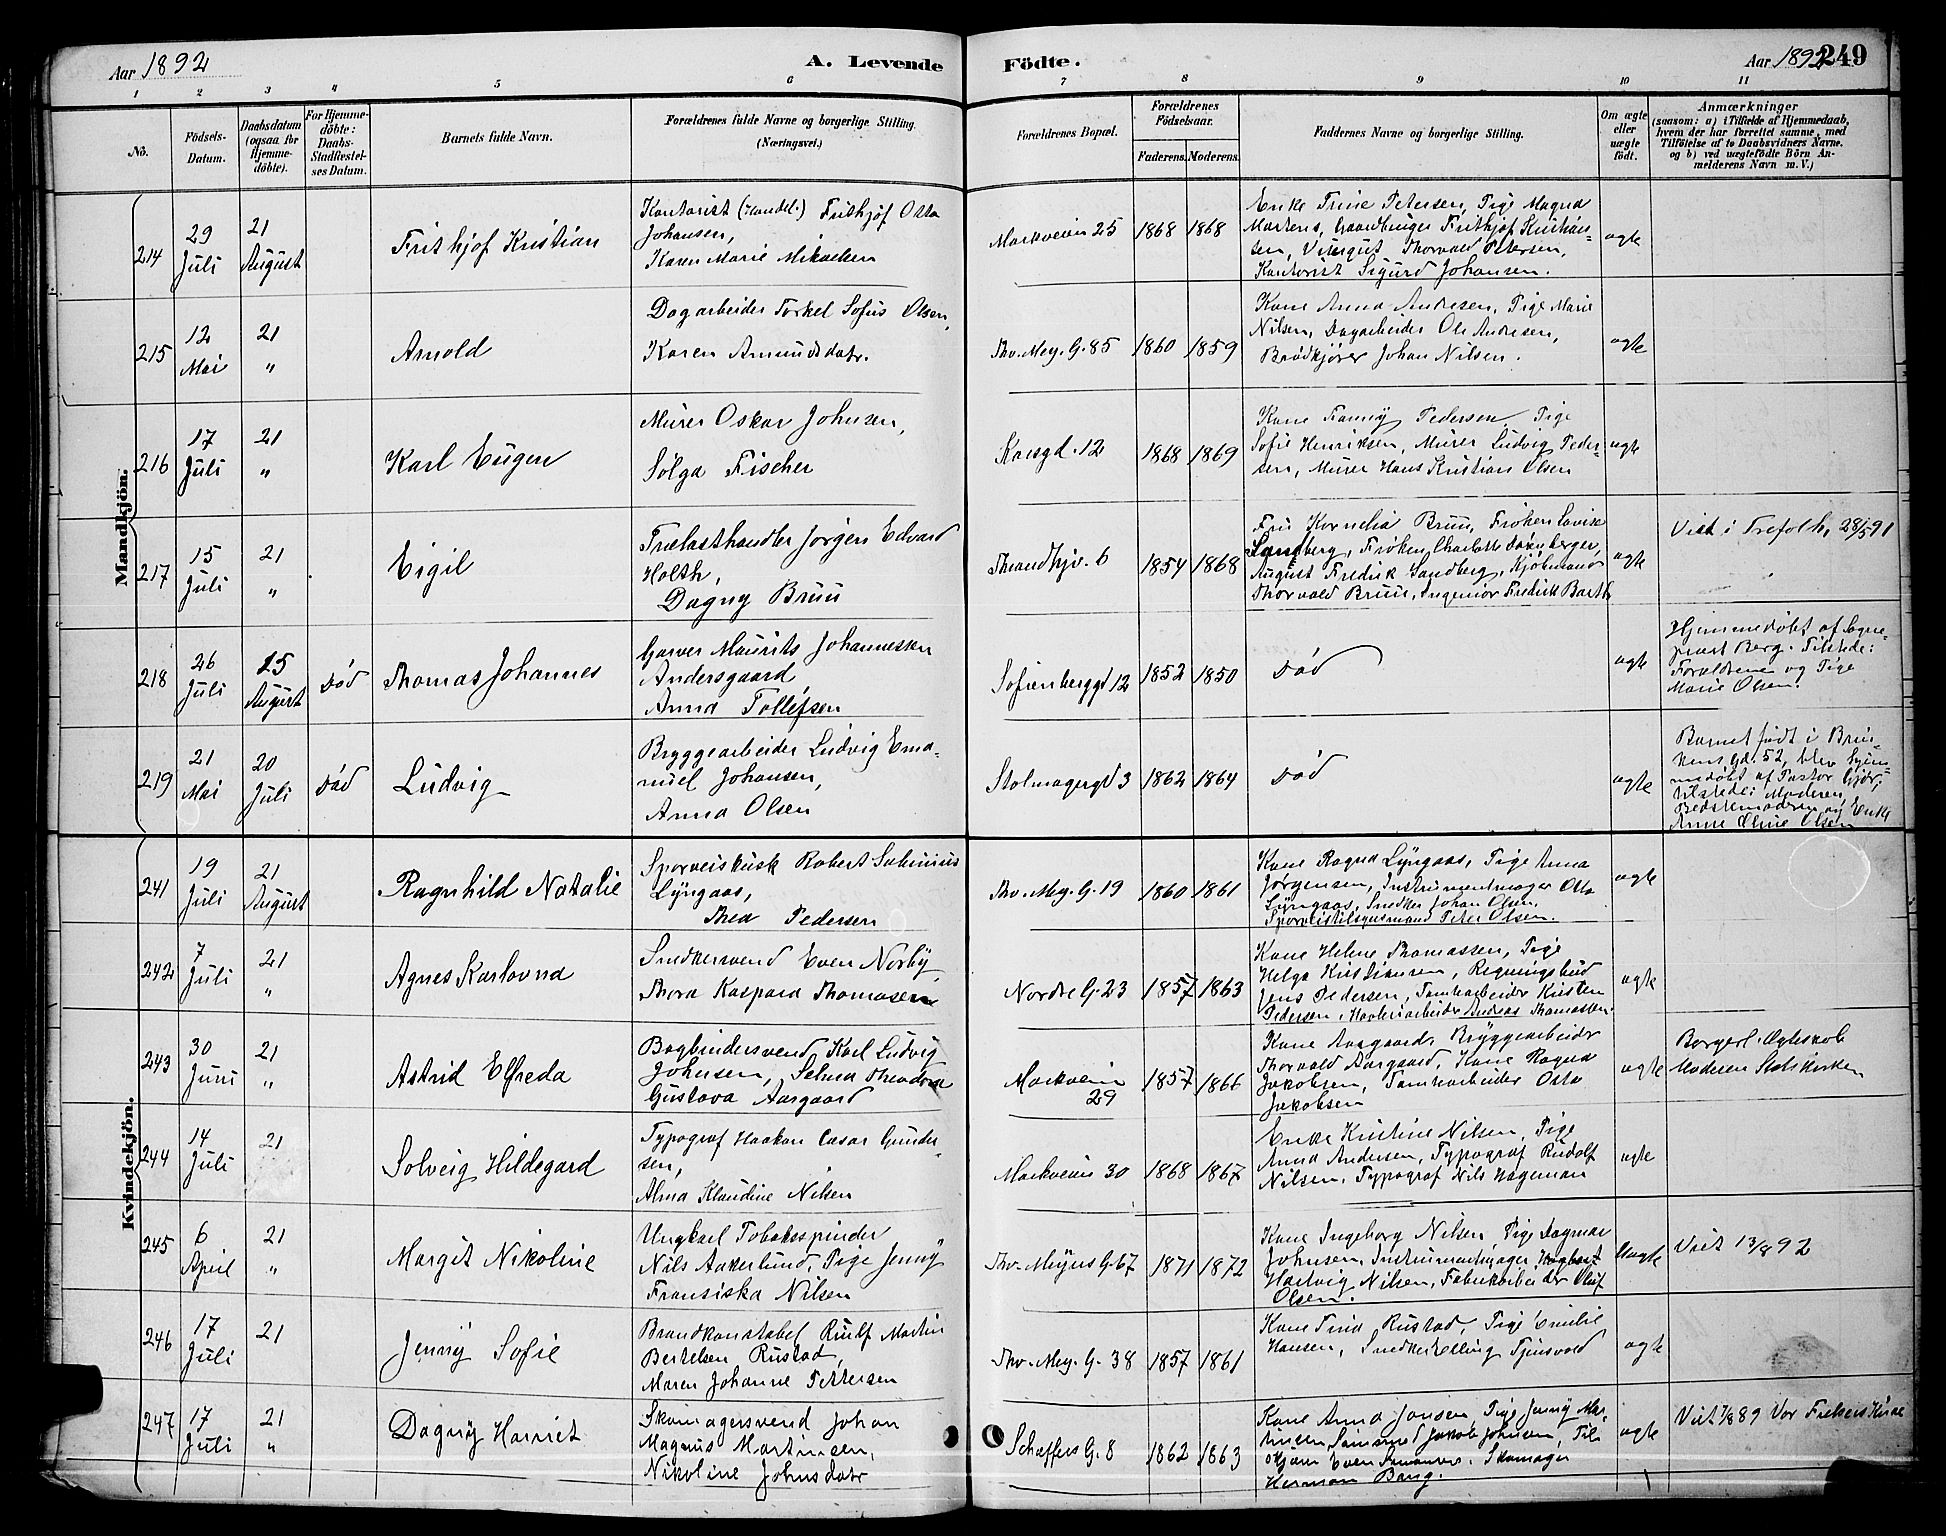 Aar 1892 A. Levende Fødte. Aar 1892 249
1 2 3 4 5 6 7 8 9 10 11
No. Fødsels-Datum. Daabsdatum (ogsaa for Hjemme-døbte). For Hjemme-døbte: Daabs-Stadfæstel-ses Datum. Barnets fulde Navn. Forældrenes fulde Navne og borgerlige Stilling. (Næringsvei.) Forældrenes Bopæl. Forældrenes Fødselsaar. Faderens. Moderens. Faddernes Navne og borgerlige Stilling. Om ægte eller uægte født. Anmærkninger (saasom: a) i Tilfælde af Hjemmedaab, hvem der har forrettet samme, med Tilføielse af to Daabsvidners Navne. og b) ved uægtefødte Børn An-melderens Navn m. V.)
Mandkjøn.
214 29 Juli 21 August Frithjof Kristian
Kontorist (Handel.) Frithjof Otto
Johansen,
Karen Marie Mikaelsen
Markveien 25 1868 1868
Enke Trine Petersen, Pige Magna
Martens, Gaardbruger Frithjof Kristian-
sen, Visergut Thorvald Petersen,
Kontorist Sigurd Johansen.
ægte
215 12 Mai 21 " Arnold
Dagarbeider Torkel Sofus Olsen,
Karen Amundsdatr.
Thv. Mey. G. 85 1860 1859
Kone Anna Andresen, Pige Marie
Nilsen, Dagarbeider Ole Andresen,
Brødkjører Johan Nilsen.
ægte
216 17 Juli 21 " Karl Eugen
Murer Oskar Johnsen,
Solga Fischer
Korsgd. 12 1868 1869
Kone Fanny Pedersen, Pige
Sofie Henriksen, Murer Ludvig Peder-
sen, Murer Hans Kristian Olsen
ægte
217 15 Juli 21 " Eigil
Trælasthandler Jørgen Edvard
Holth,
Dagny Bruu
Throndhjv. 6 1854 1868
Fru Kornelia Bruu, Frøken Lovise
Sandberg, Frøken Charlotte
August Fredrik Sandberg, Kjøbmand
Thorvald Bruu, Ingeniør Fredrik Barth
ægte
Viet i Trefoldh. 28/5 91
218 26 Juli 15 August Død Thomas Johannes
Garver Maurits Johannessen
Andersgaard
Anna Tollefsen
Sofienberggd 12 1852 1850
Død
ægte
Hjemmedøbt af Sogne-
præst Berg. Tilstede:
Forældrene og Pige
Marie Olsen.
219 21 Mai 20 Juli Død Ludvig
Bryggearbeider Ludvig Ema-
nuel Johansen,
Anna Olsen
Stolmagergd 3 1862 1864
Død
ægte
Barnet født i Brin-
kens Gd. 52, blev hjem-
medøbt af Pastor
tilstede: Moderen,
Bedstemoderen og Enke
Anne Oline Olsen
Kvindekjøn.
241 19 Juli 21 August Ragnhild Natalie
Sporveiskusk Robert
Lyngaas,
Thea Pedersen
Thv. Mey. G. 19 1860 1861
Kone Ragna Lyngaas, Pige Anna
Jørgensen, Instrumentmager Otto
Lyngaas, Snedker Johan Olsen,
Sporveistilsynsmand Peter Olsen.
ægte
242 7 Juli 21 " Agnes Karlovna
Snedkersvend Even Norby,
Thora Kaspara Thomasen
Nordre G. 23 1857 1863
Kone Helene Thomassen, Pige
Helga Kristiansen, Regningsbud
Jens Pedersen, Tomtearbeider Kristen
Pedersen, Andreas Thomassen.
ægte
243 30 Juni 21 " Astrid Elfreda
Bogbindersvend Karl Ludvig
Johnsen, Selma Theodora
Gustava Aasgaard
Markveien
29 1857 1866
Kone Aasgaard, Bryggearbeider
Thorvald Aasgaard, Kone Ragna
Jakobsen, Tomtearbeider Otto
Jakobsen
ægte
Borgerl. Ægteskab
Moderen Statskirken
244 14 Juli 21 Solveig Hildegard
Typograf Haakon Cæsar Gunder-
sen,
Alma Klaudine Nilsen
Markveien 30 1868 1867
Enke Kristine Nilsen, Pige
Anna Andersen, Typograf Rudolf
Nilsen, Typograf Nils Hageman
ægte
245 6 April 21 " Margit Nikoline
Ungkarl Tobaksspinder
Nils Aakerlund, Pige Jenny
Fransiska Nilsen
Thv. Meyers G. 67 1871 1872
Kone Ingeborg Nilsen, Pige Dagmar
Johnsen, Instrumentmager
Hartvig Nilsen, Fabrikarbeider Oluf
Olsen.
Uægte
Viet 13/8 92
246 17 Juli 21 Jenny Sofie
Brandkonstabel Rulf Martin
Bertelsen Rustad,
Maren Johanne Pettersen
Thv. Mey. G. 38 1857 1861
Kone Trina Rustad, Pige Emilie
Hansen, Snedkerlærling
ægte
247 17 Juli 21 " Dagny Harriet
Skomagersvend Johan
Magnus Martinsen,
Nikoline Johnsdatr
Schæffers G. 8 1862 1863
Kone Anna Jansen, Pige Jenny Mar-
tinsen, Sømmed Jakob Johnsen,
Even Skomager
Herman Bang.
ægte
Viet 1/8 89 Vor Frelsers Kirke